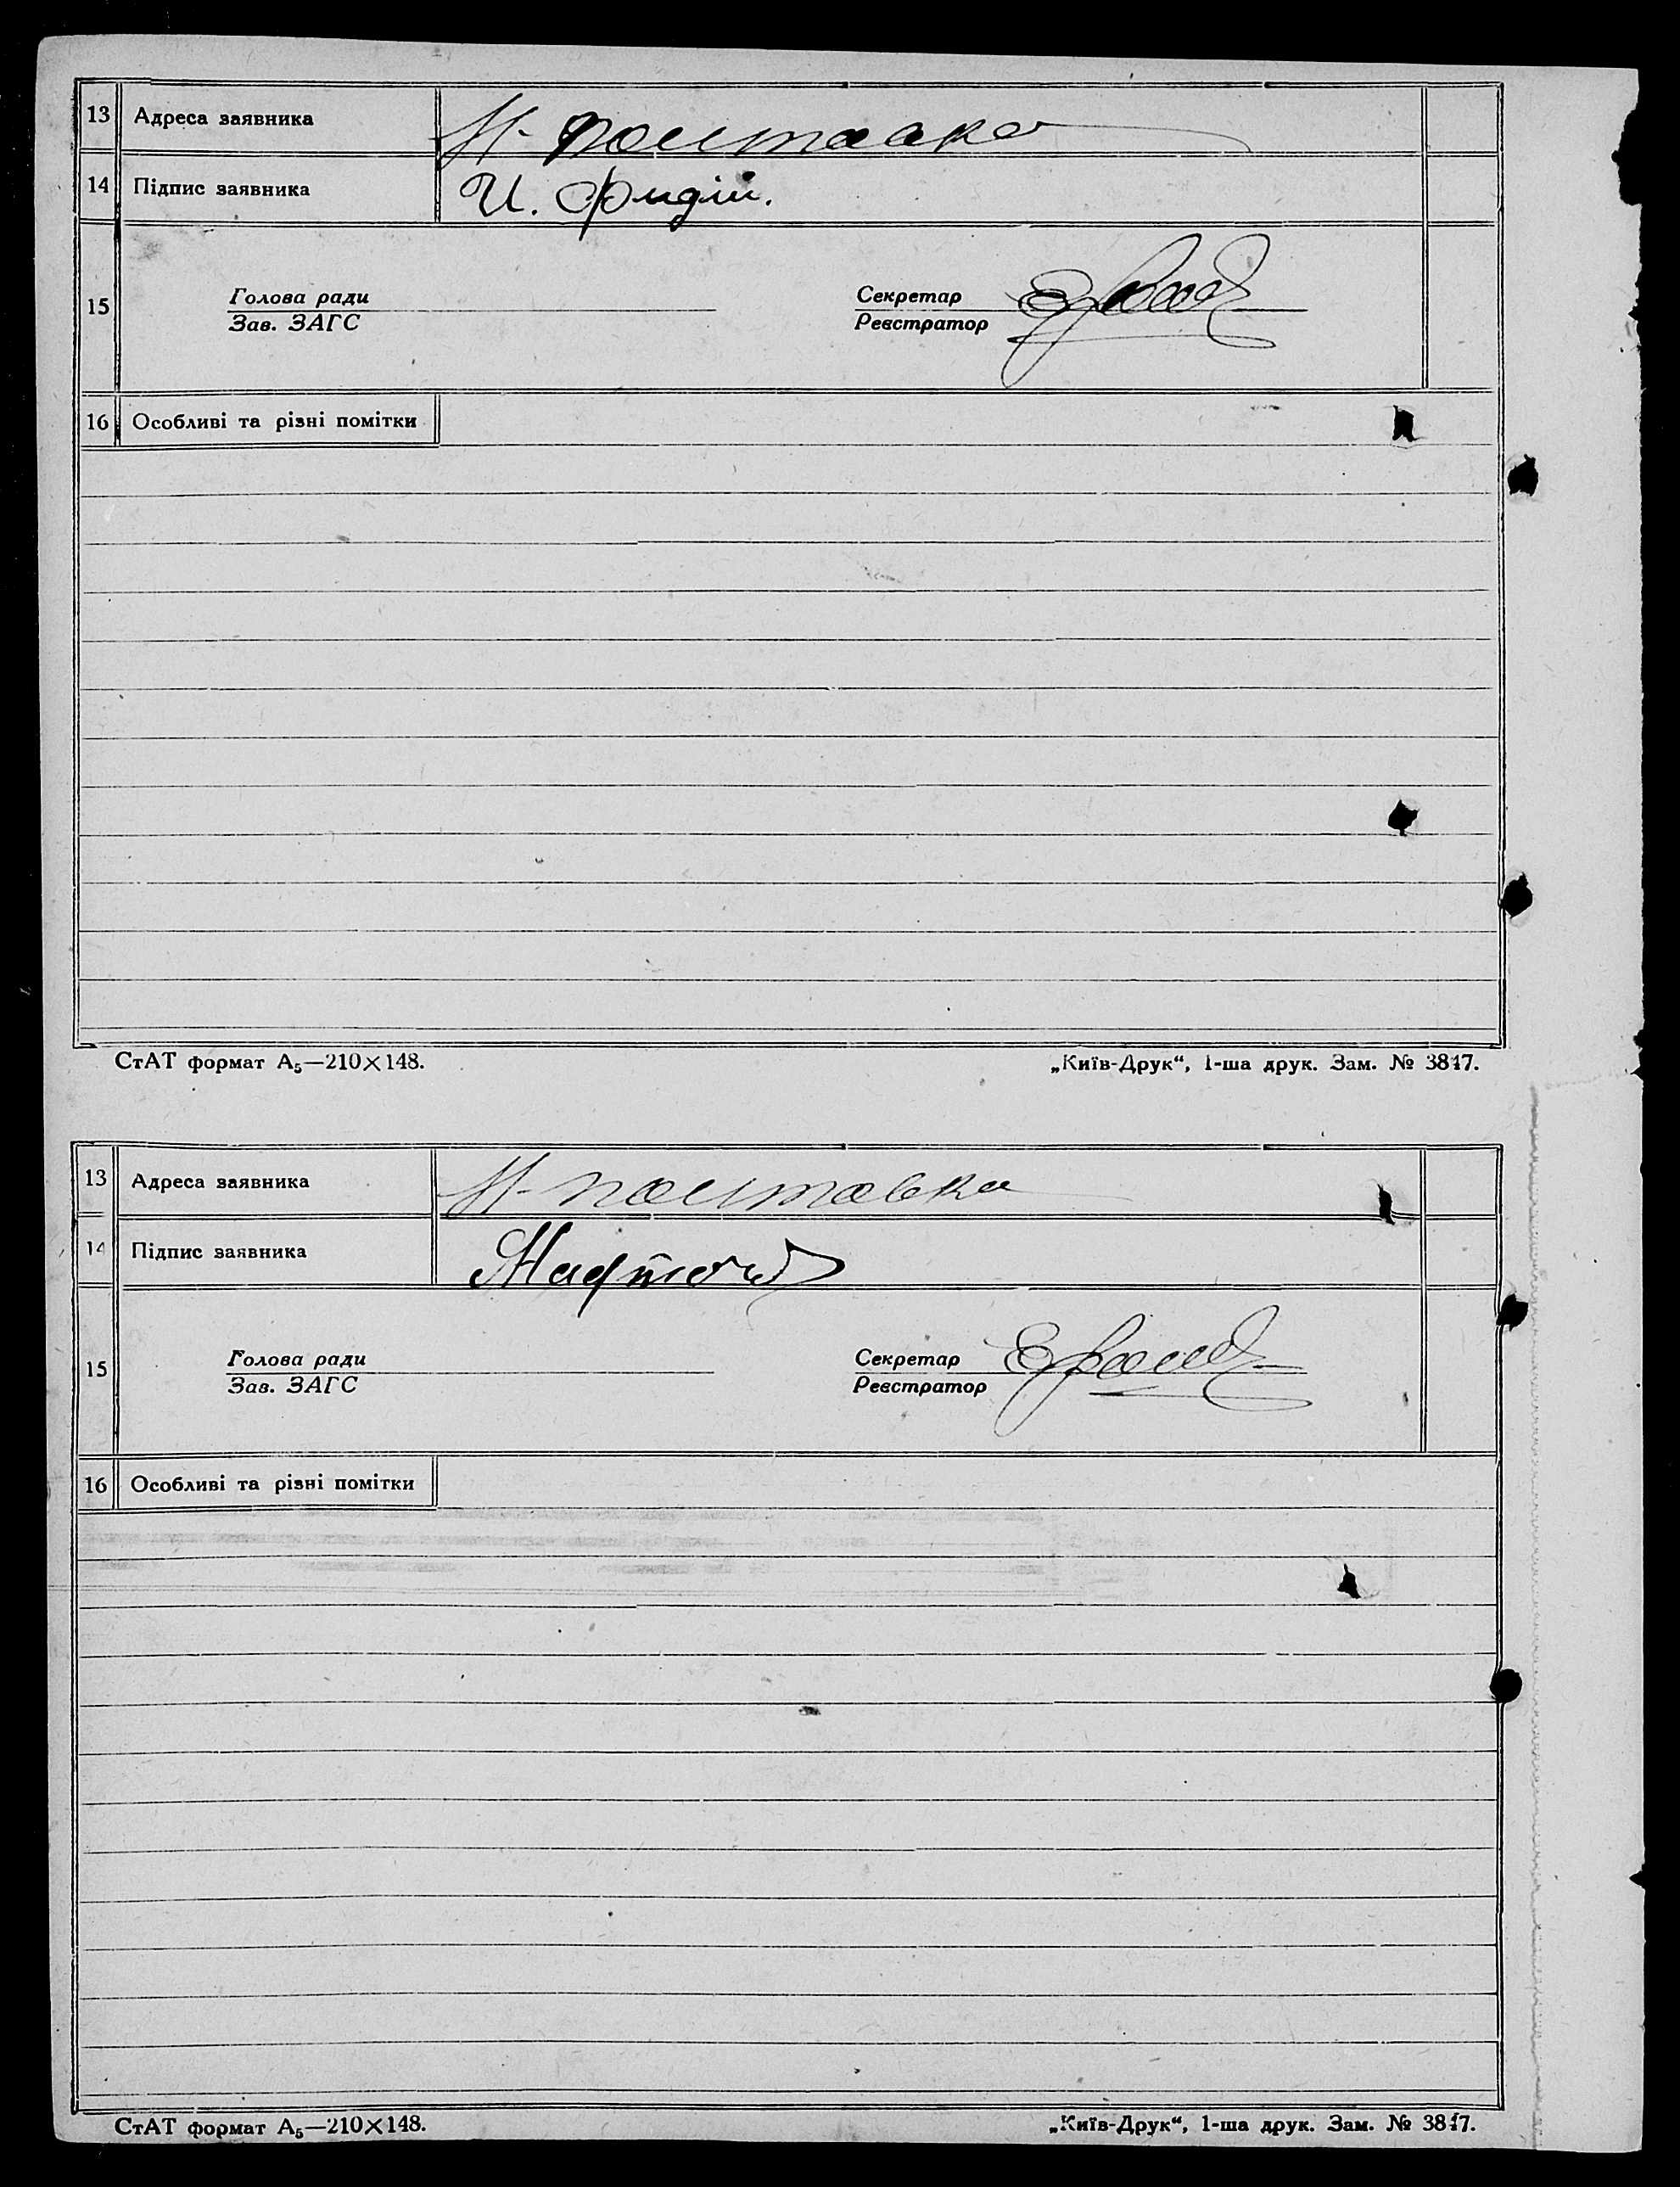 13 Адреса заявника Н-полтавка
14 Підпис заявника И. Фидій.
Голова ради Секретар
15
Зав. ЗАГС Реєстратор
16 Особливі та різні помітки
СтАТ формат А₅—210×148. „Київ-Друк“, 1-ша друк. Зам. № 3817.
13 Адреса заявника Н-полтавка
14 Підпис заявника
Голова ради Секретар
15
Зав. ЗАГС Реєстратор
16 Особливі та різні помітки
СтАТ формат А₅—210×148. „Київ-Друк“, 1-ша друк. Зам. № 3817.